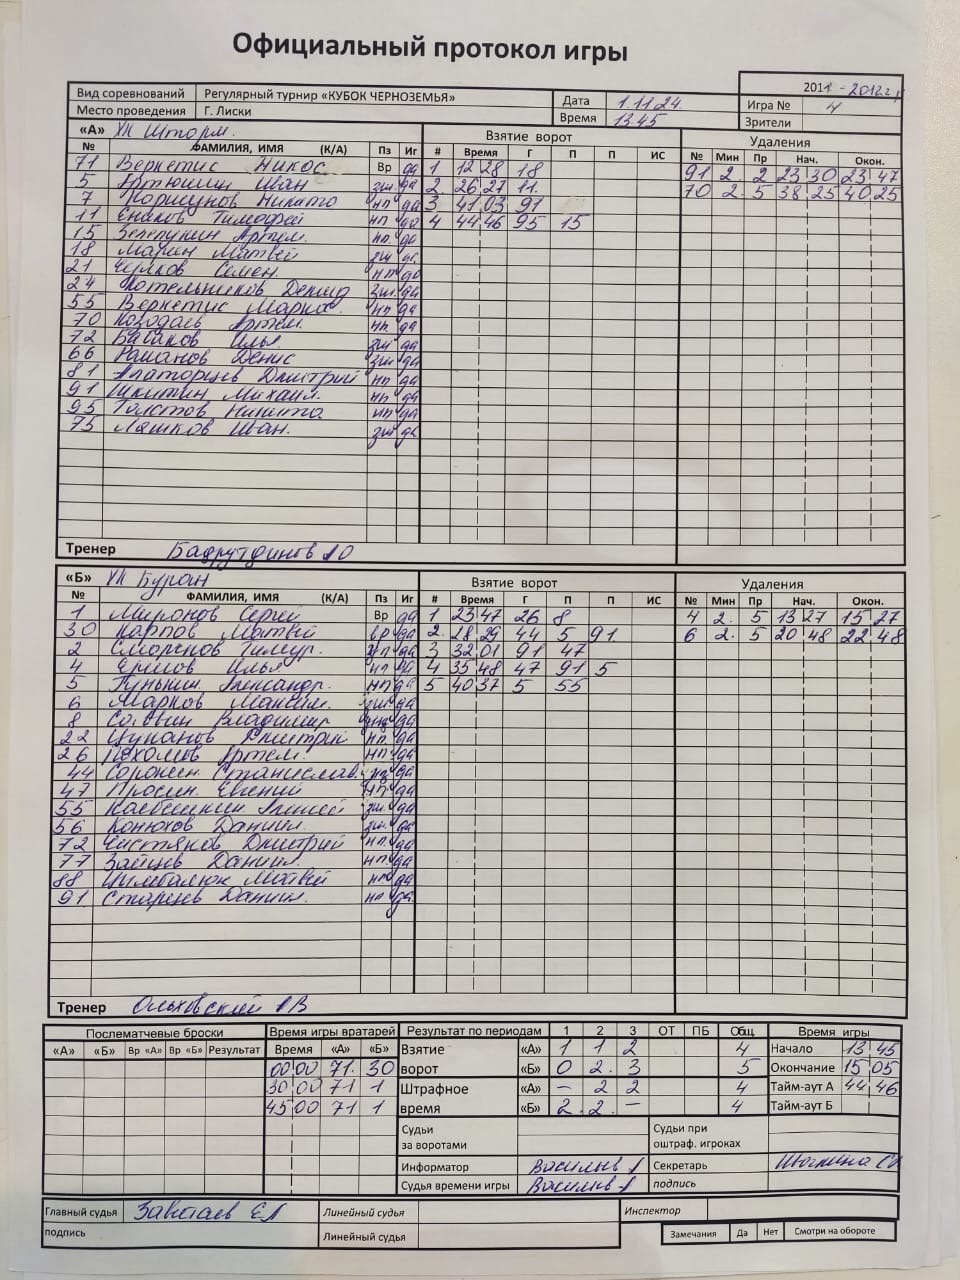 Официальный протокол игры
2011 - 2012 г.р
Вид соревнований Регулярный турнир «КУБОК ЧЕРНОЗЕМЬЯ» Дата 1.11.24 Игра № 4
Место проведения Г. Лиски Время 13.45 Зрители
«А» ХК Шторм. Взятие ворот Удаления
№ ФАМИЛИЯ, ИМЯ (К/А) Пз Иг # Время Г П П ИС № Мин Пр Нач. Окон.
71 Веркетис Никос Вр да 1 12 28 18 91 2. 2 23 30 23 47
5 Артюшин Иван зщ да 2 26 27 11. 70 2. 5 38 25 40 25
7 Коршунов Никита нп да 3 41 03 91
11 Еников Тимофей нп да 4 44 46 95 15
15 Артем. нп. да
18 Матвей зщ да
21 Семен. нп да
24 Котельников зщ. да
55 Веркетис Марко. нп да
70 Козодаев Артем. нп. да
72 Бабаков Илья зщ да
66 Романов Денис зщ да
81 Дмитрий нп да
91 Никитин Михаил. нп да
95 Толстов Никита нп да
75 Ляшков Иван. зщ да
Тренер Бадрутдинов
«Б» ХК Буран Взятие ворот Удаления
№ ФАМИЛИЯ, ИМЯ (К/А) Пз Иг # Время Г П П ИС № Мин Пр Нач. Окон.
1 Миронов Сергей Вр да 1 23 47 26 8 4 2. 5 13 27 15 27
30 Карпов Матвей вр да 2. 28 29 44 5 91 6 2. 5 20 48 22 48
2 Тимур. нп да 3 32 01 91 47
4 Илья нп да 4 35 48 47 91 5
5 Александр. нп да 5 40 37 5 55
6 Марков Максим. зщ да
8 Владимир да
22 Цуканов Дмитрий нп. да
26 Пахомов Артем. нп. да
44 Сорокин Станислав. да
47 Просин Евгений нп. да
55 зщ. да
56 Конюхов Даниил. зщ. да
72 Чистяков Дмитрий нп. да
77 Зайцев Даниил. нп да
88 Цимбалюк Матвей нп да
91 Старцев Даниил. нп да
Тренер Ольховский
Послематчевые броски Время игры вратарей Результат по периодам 1 2 3 ОТ ПБ Общ. Время игры
«А» «Б» Вр «А» Вр «Б» Результат Время «А» «Б» Взятие «А» 1 1 2 4 Начало 13 45
00 00 71. 30 ворот «Б» 0 2. 3 5 Окончание 15 05
30 00 71 1 Штрафное «А» – 2 2 4 Тайм-аут А 44 46
45 00 71 1 время «Б» 2. 2. – 4 Тайм-аут Б
Судьи за воротами Судьи при оштраф. игроках
Информатор Секретарь
Судья времени игры подпись
Главный судья Линейный судья Инспектор
подпись Линейный судья Замечания Да Нет Смотри на обороте